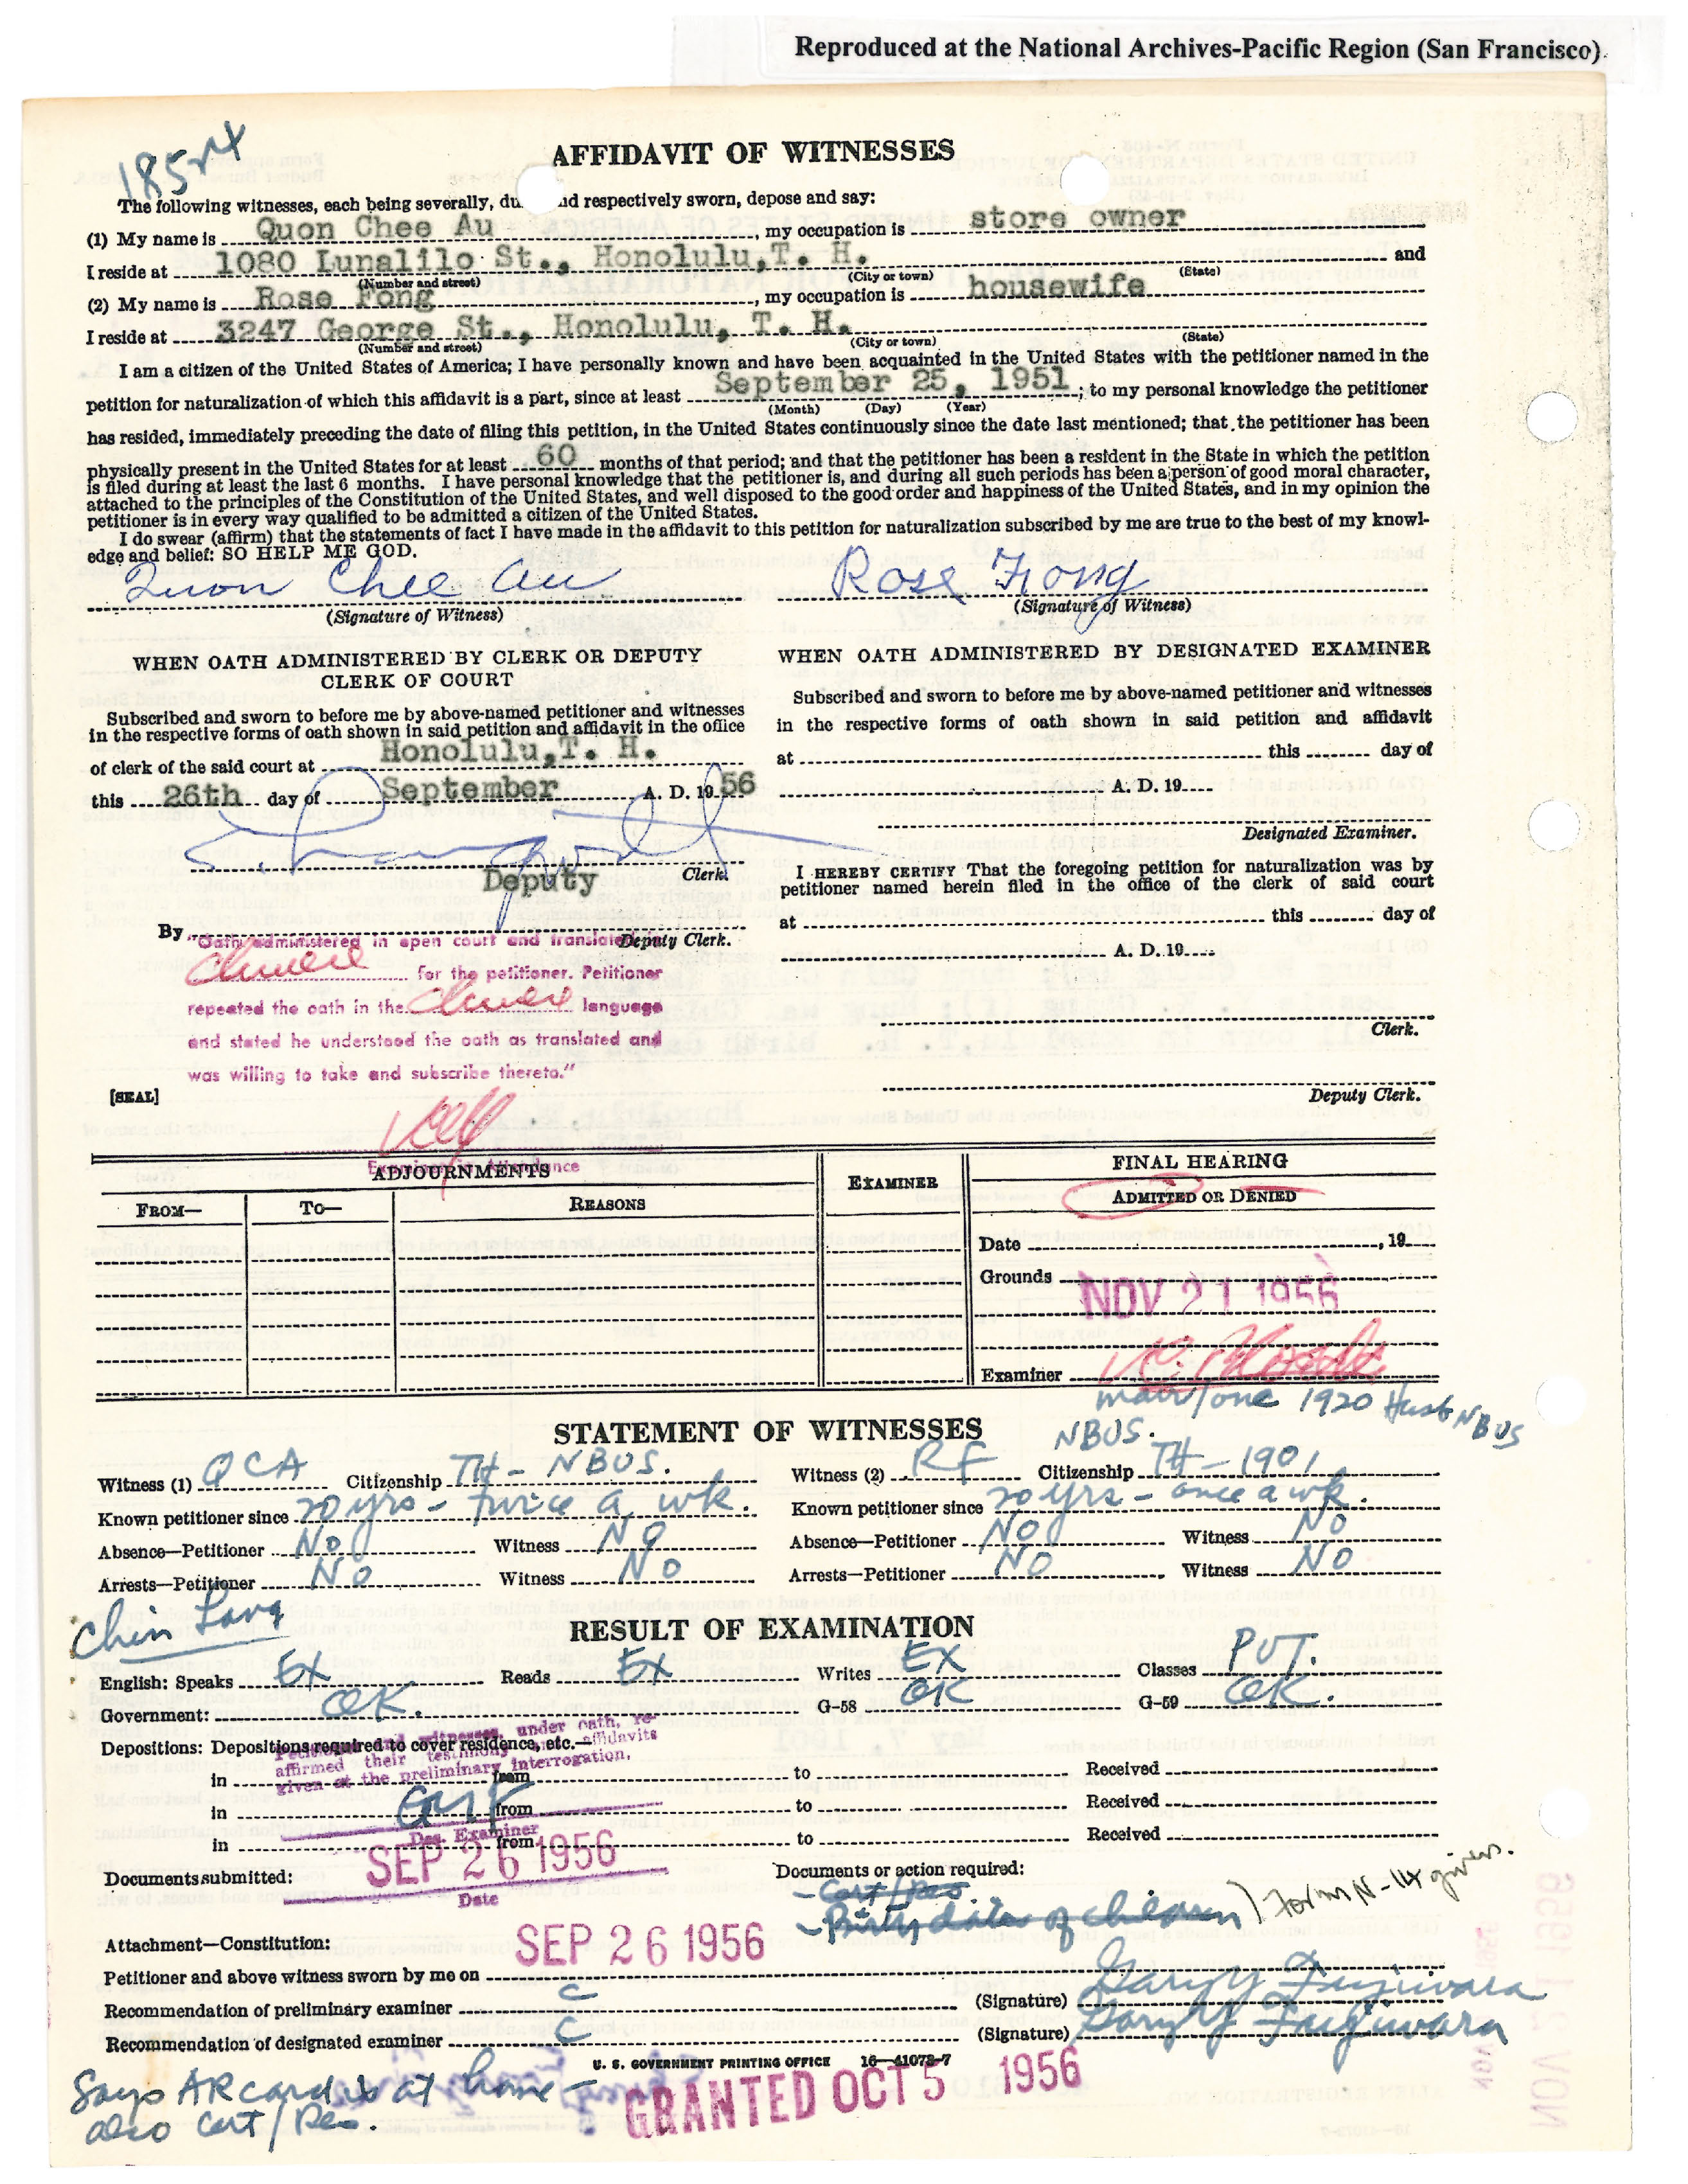 Reproduced at the National Archives-Pacific Region (San Francisco)
AFFIDAVIT OF WITNESSES
The following witnesses, each being severally, du nd respectively sworn, depose and say:
(1) My name is Quon Chee Au, my occupation is store owner
I reside at 1080 Lunalilo St., Honolulu, T. H. and
(Number and street) (City or town) (State)
(2) My name is Rose Fong, my occupation is housewife
I reside at 3247 George St., Honolulu, T. H.
(Number and street) (City or town) (State)
I am a citizen of the United States of America; I have personally known and have been acquainted in the United States with the petitioner named in the
petition for naturalization of which this affidavit is a part, since at least September 25, 1951; to my personal knowledge the petitioner
(Month) (Day) (Year)
has resided, immediately preceding the date of filing this petition, in the United States continuously since the date last mentioned; that the petitioner has been
physically present in the United States for at least 60 months of that period; and that the petitioner has been a resident in the State in which the petition
is filed during at least the last 6 months. I have personal knowledge that the petitioner is, and during all such periods has been a person of good moral character,
attached to the principles of the Constitution of the United States, and well disposed to the good order and happiness of the United States, and in my opinion the
petitioner is in every way qualified to be admitted a citizen of the United States.
I do swear (affirm) that the statements of fact I have made in the affidavit to this petition for naturalization subscribed by me are true to the best of my knowl-
edge and belief: SO HELP ME GOD.
Quon Chee Au Rose Fong
(Signature of Witness) (Signature of Witness)
WHEN OATH ADMINISTERED BY CLERK OR DEPUTY
CLERK OF COURT
Subscribed and sworn to before me by above-named petitioner and witnesses
in the respective forms of oath shown in said petition and affidavit in the office
of clerk of the said court at Honolulu, T. H.
this 26th day of September A. D. 19 56
Deputy Clerk.
By Deputy Clerk.
"Oath administered in open court and translated
Chinese for the petitioner. Petitioner
repeated the oath in the Chinese language
and stated he understood the oath as translated and
was willing to take and subscribe thereto."
[SEAL]
Examiner in Attendance
WHEN OATH ADMINISTERED BY DESIGNATED EXAMINER
Subscribed and sworn to before me by above-named petitioner and witnesses
in the respective forms of oath shown in said petition and affidavit
at this day of
A. D. 19
Designated Examiner.
I HEREBY CERTIFY That the foregoing petition for naturalization was by
petitioner named herein filed in the office of the clerk of said court
at this day of
A. D. 19
Clerk.
Deputy Clerk.
ADJOURNMENTS EXAMINER FINAL HEARING
FROM— TO— REASONS ADMITTED OR DENIED
Date , 19
Grounds
NOV 21 1956
Examiner
1920 Husb NBUS
STATEMENT OF WITNESSES
NBUS.
Witness (1) QCA Citizenship TH - NBUS. Witness (2) RF Citizenship TH - 1901
Known petitioner since 20 yrs - twice a wk. Known petitioner since 20 yrs - once a wk.
Absence—Petitioner No Witness No Absence—Petitioner No Witness No
Arrests—Petitioner No Witness No Arrests—Petitioner No Witness No
Chin Lang
RESULT OF EXAMINATION
English: Speaks EX Reads EX Writes EX Classes PVT.
Government: OK. G-58 OK G-59 OK.
Depositions: Depositions required to cover residence, etc.—
Petitioner and witnesses, under oath, re-
affirmed their testimony affidavits
given at the preliminary interrogation.
in from to Received
in from to Received
in from to Received
Des. Examiner
SEP 26 1956
Date
Documents submitted: Documents or action required:
- Cert/Res.
- Birthdates of children) Forms N-14 given.
Attachment—Constitution:
Petitioner and above witness sworn by me on SEP 26 1956
Recommendation of preliminary examiner C (Signature) Garyy Fujiwara
Recommendation of designated examiner C (Signature) Garyy Fujiwara
U. S. GOVERNMENT PRINTING OFFICE 16—41072-7
Says AR card is at home -
also Cert/Res.
GRANTED OCT 5 1956